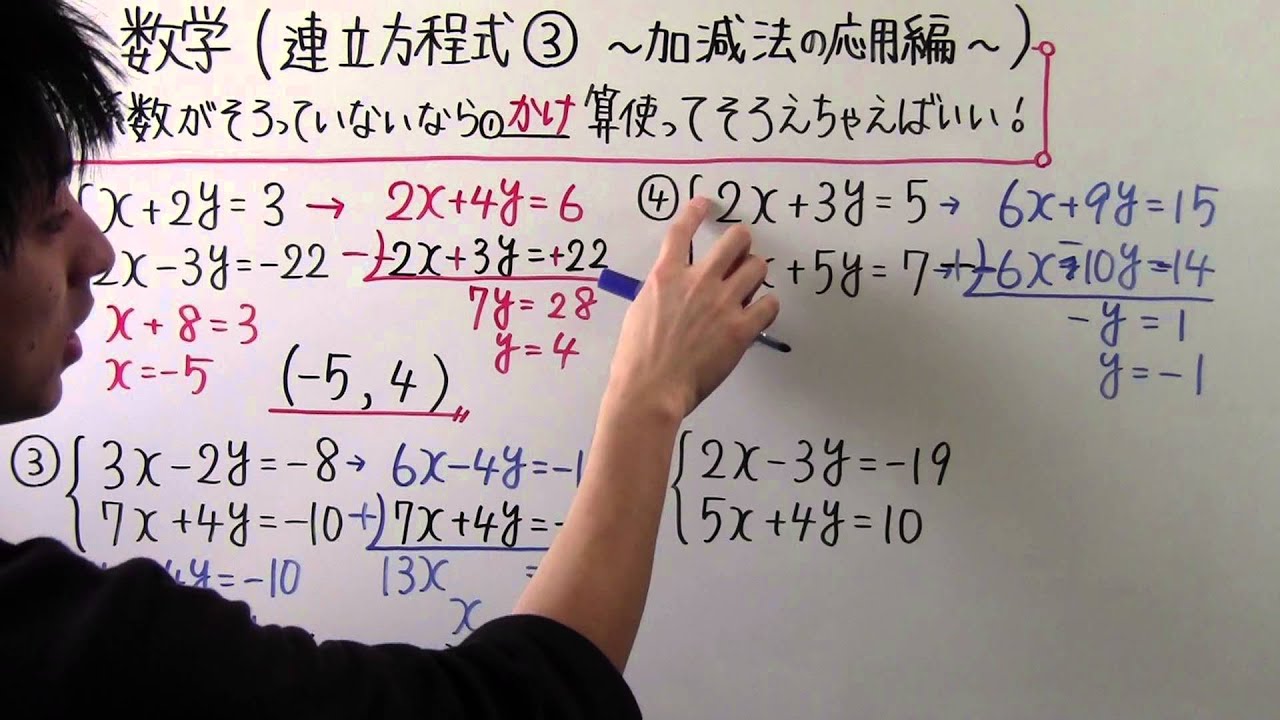 数学（連立方程式③ ～加減法の応用編～）
数がそろっていないなら①かけ算使ってそろえちゃえばいい！
x+2y=3 → 2x+4y=6
2x-3y=-22 -)-2x+3y=+22
7y=28
x+8=3
y=4
x=-5
(-5,4)
④ 2x+3y=5 → 6x+9y=15
x+5y=7 → +)-6x-10y=-14
-y=1
y=-1
③ 3x-2y=-8 → 6x-4y=-1
7x+4y=-10 +)7x+4y=-
4y=-10 13x =
x
2x-3y=-19
5x+4y=10